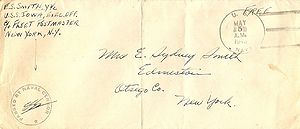 E.S. SMITH, Y1C
U.S.S. IOWA, EXEC. OFF.
c/o FLEET POSTMASTER
NEW YORK, N.Y.
FREE
MAY
A.M.
Mrs E. Sydney Smith
Edmeston
Otsego Co.
New York.
PASSED BY NAVAL CENSOR